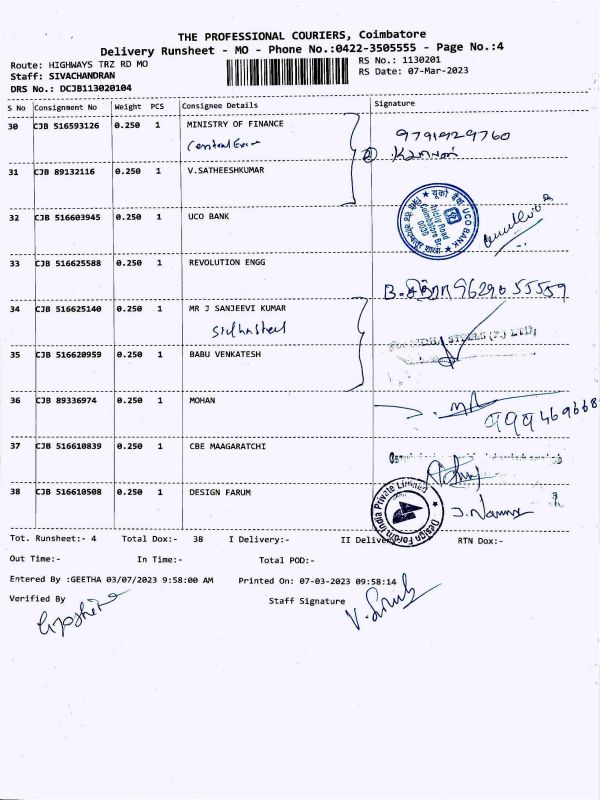 THE PROFESSIONAL COURIERS, Coimbatore
Delivery Runsheet - MO - Phone No.:0422-3505555 - Page No.:4
Route: HIGHWAYS TRZ RD MO
RS No.: 1130201
Staff: SIVACHANDRAN
RS Date: 07-Mar-2023
DRS No.: DCJB113020104
S No Consignment No Weight PCS Consignee Details Signature
30 CJB 516593126 0.250 1 MINISTRY OF FINANCE
9791929760
31 CJB 89132116 0.250 1 V.SATHEESHKUMAR
32 CJB 516603945 0.250 1 UCO BANK
UCO BANK
33 CJB 516625588 0.250 1 REVOLUTION ENGG
34 CJB 516625140 0.250 1 MR J SANJEEVI KUMAR
STEELS (P) LTD,
35 CJB 516620959 0.250 1 BABU VENKATESH
36 CJB 89336974 0.250 1 MOHAN
37 CJB 516610839 0.250 1 CBE MAAGARATCHI
38 CJB 516610508 0.250 1 DESIGN FARUM
Design Forum India Private Limited
Tot. Runsheet:- 4 Total Dox:- 38 I Delivery:- II Delivery RTN Dox:-
Out Time:- In Time:- Total POD:-
Entered By :GEETHA 03/07/2023 9:58:00 AM Printed On: 07-03-2023 09:58:14
Verified By Staff Signature